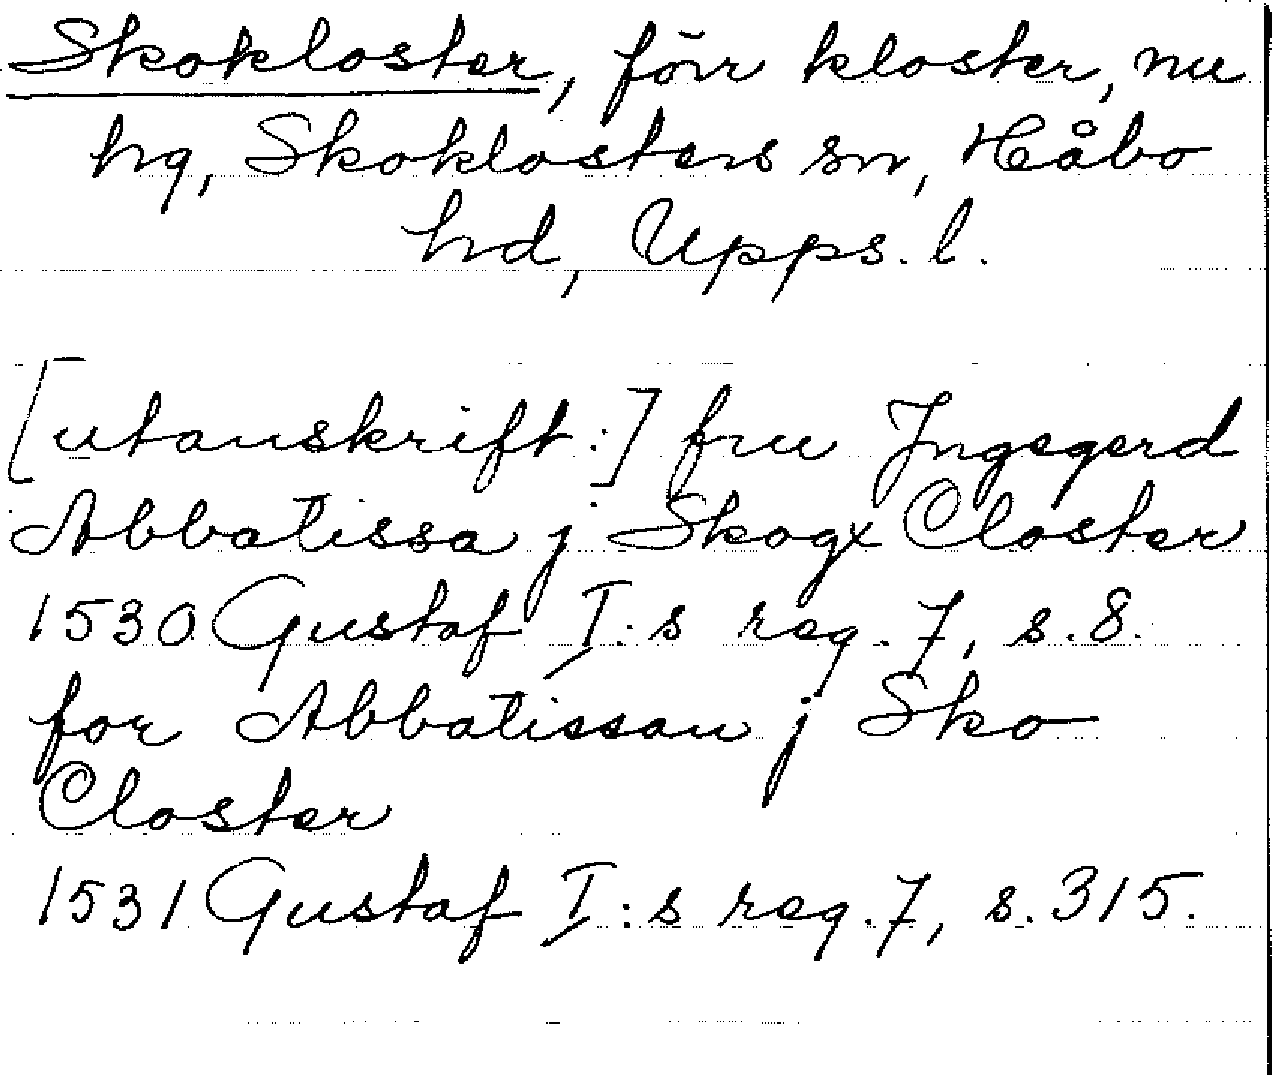 Skokloster, förr kloster, nu
hg, Skoklosters sn, Håbo
hd, Upps. l.
[utanskrift:] fru Jngegerd
Abbatissa j Skogx Closter
1530 Gustaf I:s reg. 7, s. 8.
for Abbatissan j Sko
Closter
1531 Gustaf I:s reg. 7, s. 315.